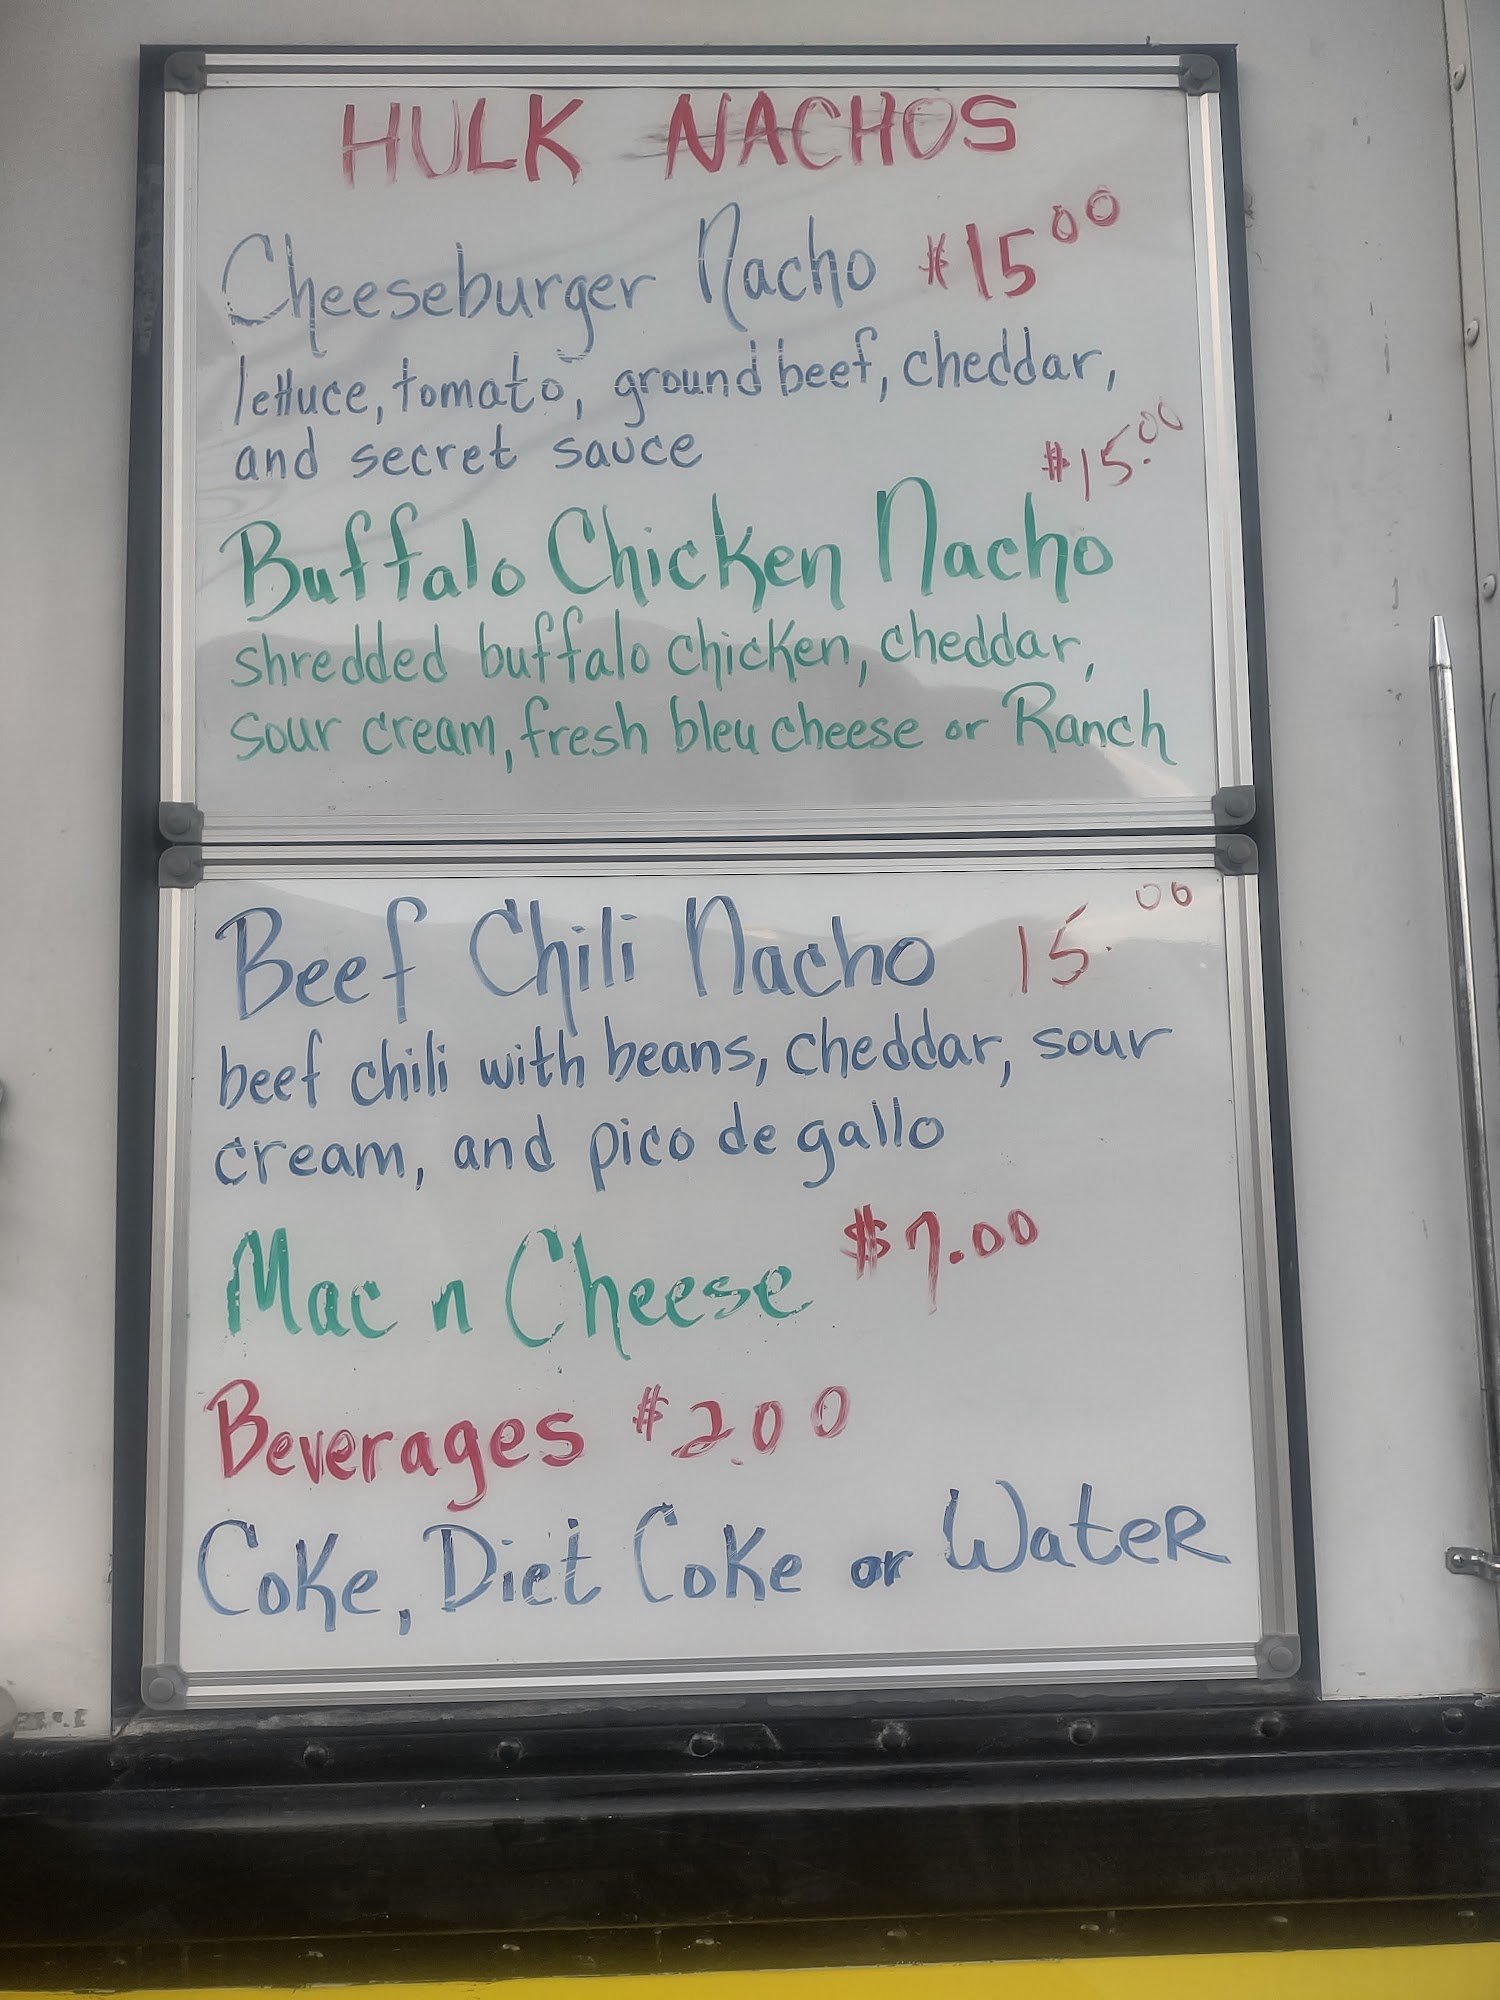 HULK NACHOS
Cheeseburger Nacho $15.00
lettuce, tomato, ground beef, cheddar,
and secret sauce
$15.00
Buffalo Chicken Nacho
shredded buffalo chicken, cheddar,
sour cream, fresh bleu cheese or Ranch
Beef Chili Nacho 15.00
beef chili with beans, cheddar, sour
cream, and pico de gallo
Mac n Cheese $7.00
Beverages $2.00
Coke, Diet Coke or Water